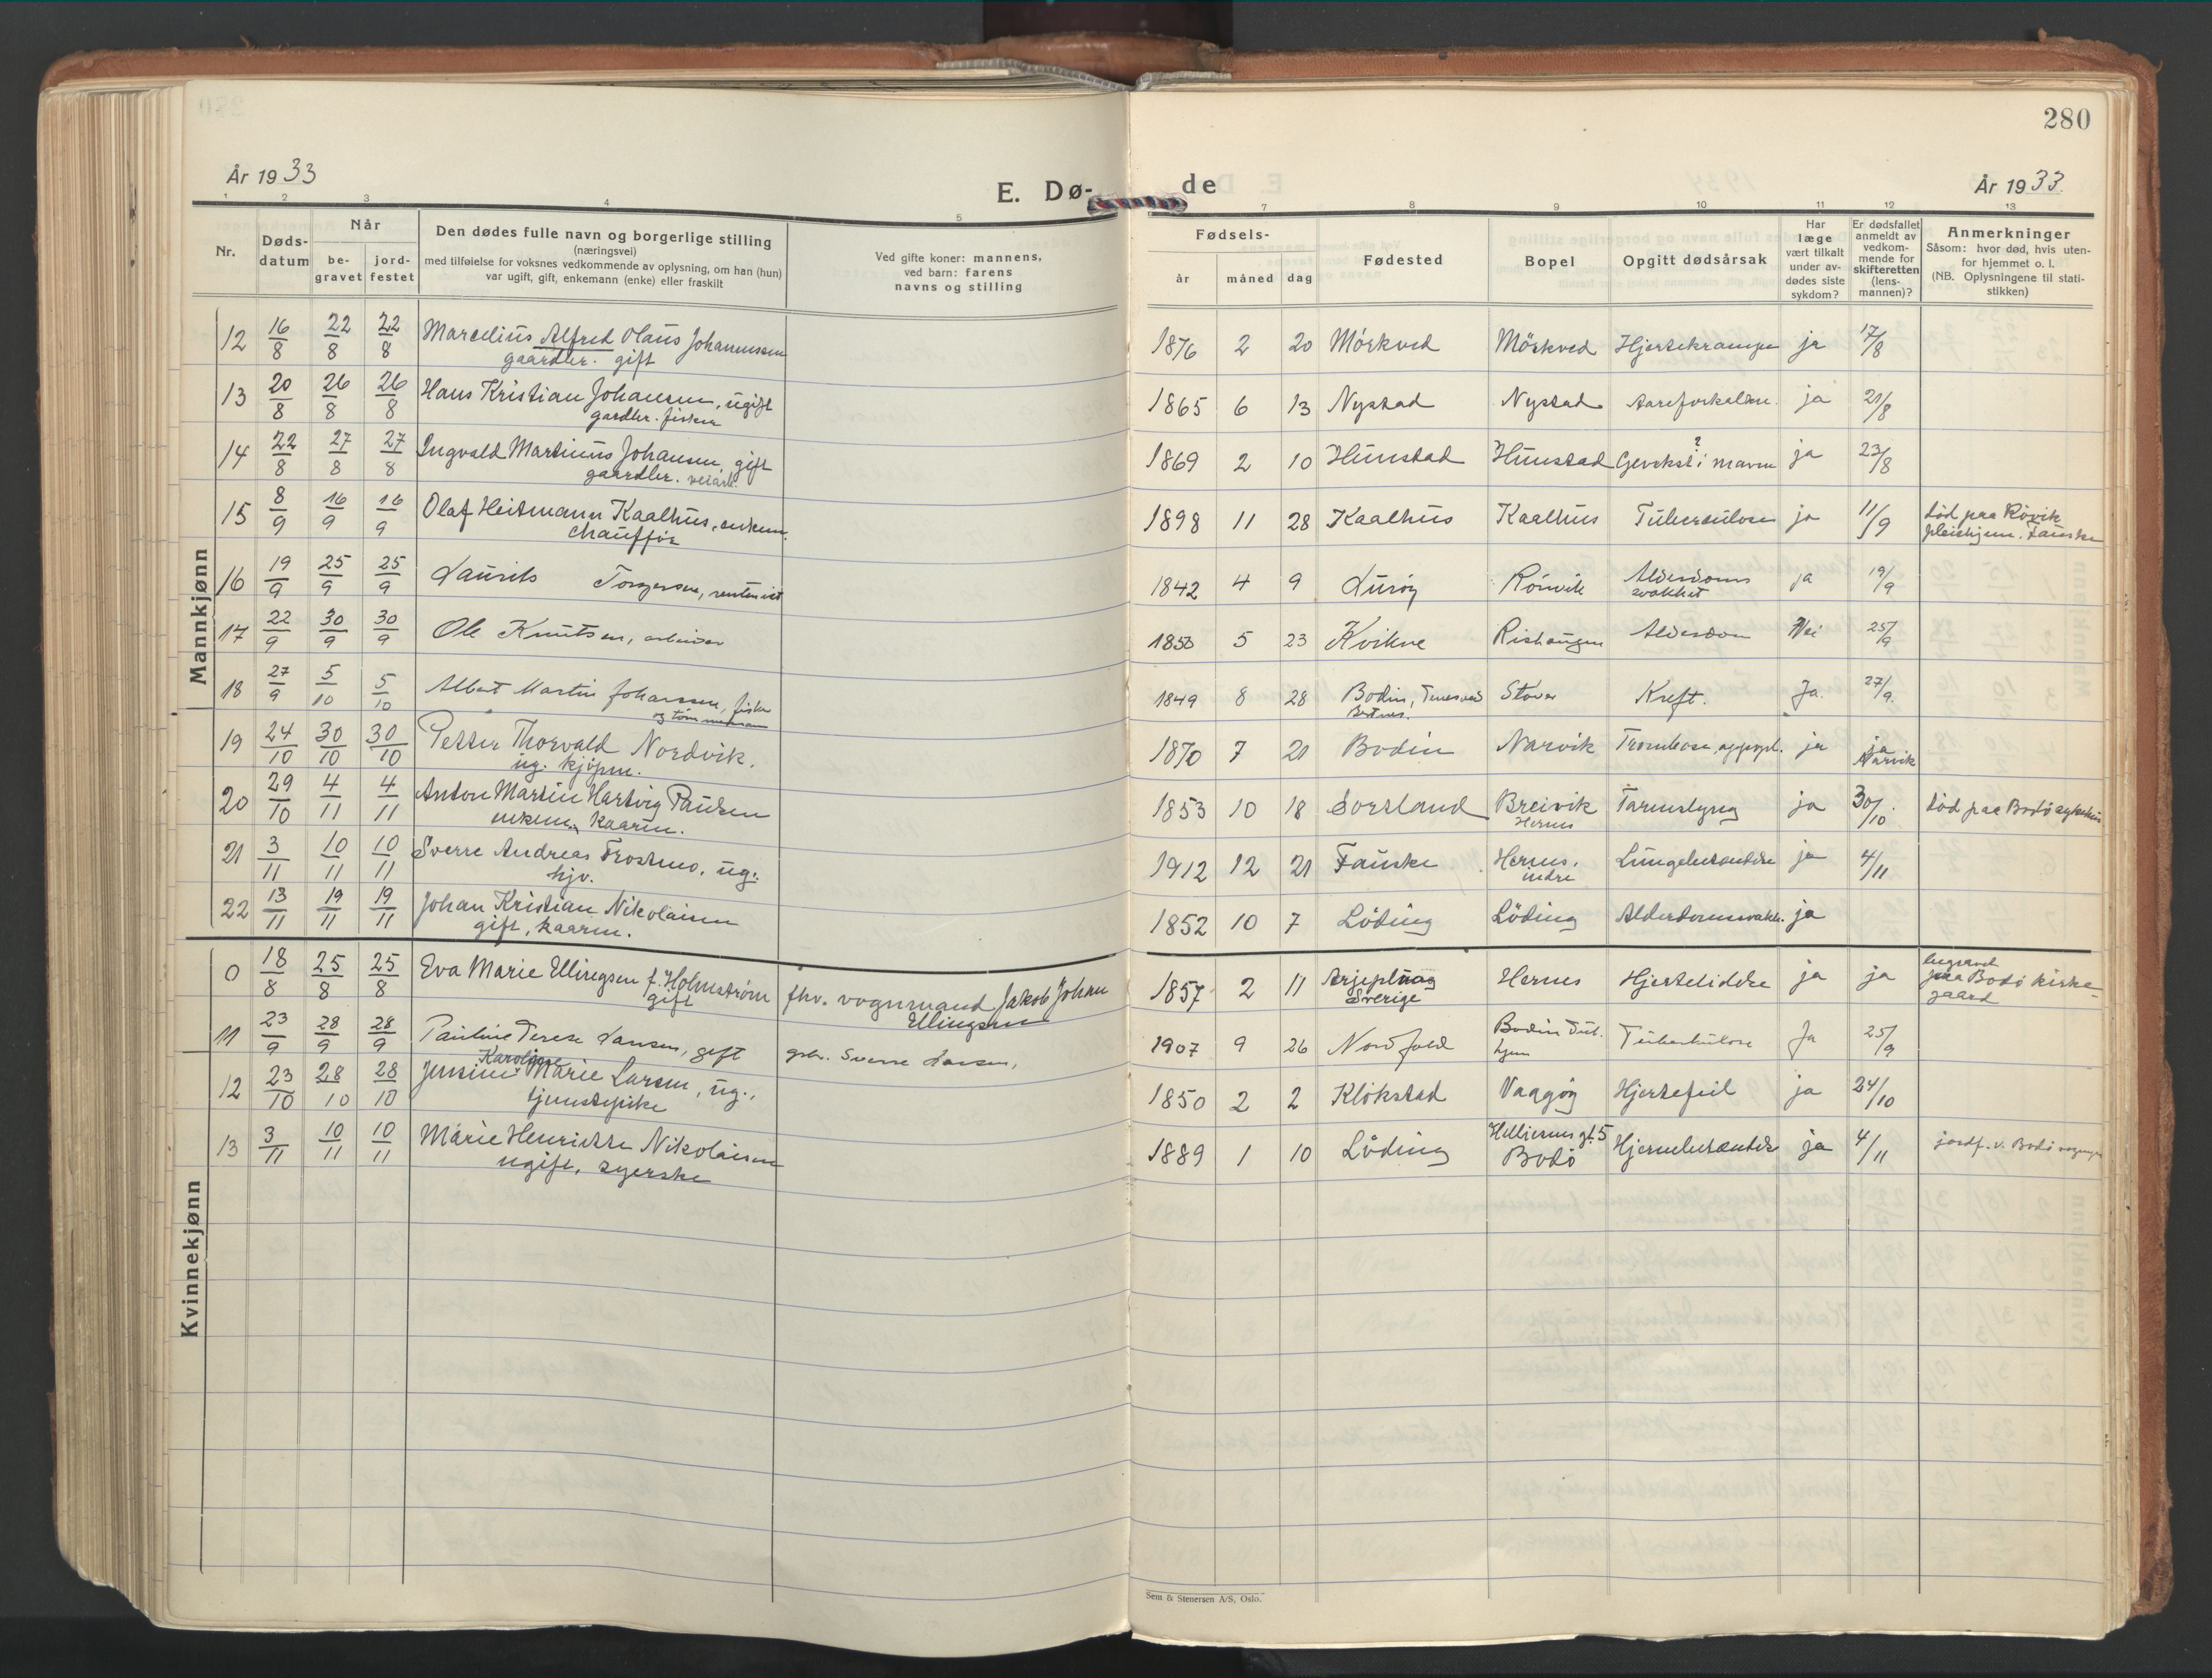 280
År 1933
E. Dø-
de
År 1933.
1 2 3 4 5 7 8 9 10 11 12 13
Nr.
Døds-
datum
Når
be-
gravet
jord-
festet
Den dødes fulle navn og borgerlige stilling
(næringsvei)
med tilføielse for voksnes vedkommende av oplysning, om han (hun)
var ugift, gift, enkemann (enke) eller fraskilt
Ved gifte koner: mannens,
ved barn: farens
navns og stilling
Fødsels-
år måned dag
Fødested
Bopel
Opgitt dødsårsak
Har
læge
vært tilkalt
under av-
dødes siste
sykdom?
Er dødsfallet
anmeldt av
vedkom-
mende for
skifteretten
(lens-
mannen)?
Anmerkninger
Såsom: hvor død, hvis uten-
for hjemmet o. l.
(NB. Oplysningene til stati-
stikken)
Mannkjønn
12 16/8 22/8 22/8 Marcelius Alfred Olaus Johannessen 1876 2 20 Mörkved Mörkved Hjertekrampe ja 17/8
gaardbr. gift
13 20/8 26/8 26/8 Hans Kristian Johansen, ugift 1865 6 13 Nystad Nystad Aareforkalkn. ja 21/8
gardbr. fisker
14 22/8 27/8 27/8 Ingvald Martinus Johansen, gift 1869 2 10 Hunstad Hunstad Gevekst ? i maven ja 23/8
gaardbr. veiarb.
15 8/9 16/9 16/9 Olaf Heitmann Kaalhus, enkem. 1898 11 28 Kaalhus Kaalhus Tuberculose ja 11/9 död paa Rövik
chaufför
pleiehjem. Fauske
16 19/9 25/9 25/9 Laurits Torgersen, rentenist 1842 4 9 Luröy Rönvik Alderdoms ja 19/9
svakhet
17 22/9 30/9 30/9 Ole Knutsen, arbeider 1850 5 23 Kvikne Rishaugen Alderdom Nei 25/9
18 27/9 5/10 5/10 Albert Martin Johansen, fisker 1849 8 28 Bodin, Stover Kreft. Ja. 27/9.
og tömmermann
19 24/10 30/10 30/10 Petter Thorvald Nordvik. 1870 7 21 Bodin Narvik Trombose, ja ja
ug. kjöpm.
Narvik
20 29/10 4/11 4/11 Anton Martin Hartvig Paulsen 1853 10 18 Sortland Breivik Tarmslyng ja 30/10. död paa Bodö sykehus
enkem. kaarm.
Hernes
21 3/11 10/11 10/11 Sverre Andreas Trostmo, ug. 1912 12 21 Fauske Hernes, Lungebetændelse ja 4/11
hjv.
indre
22 13/11 19/11 19/11 Johan Kristian Nikolaisen 1852 10 7 Löding Löding Alderdomssvakh. ja
gift, kaarm.
Kvinnekjønn
0 18/8 25/8 25/8 Eva Marie Ellingsen f. Holmström fhv. vognmand Jakob Johan 1857 2 11 Arjepluog Hernes Hjertelidelse ja ja begravet
gift
Ellingsen
Sverige
paa Bodö kirke-
gaard
11 23/9 28/9 28/9 Pauline Terese Larsen, gift gbr. Sverre Larsen, 1907 9 26 Nordfold Bodin Tub. Tuberkulose Ja 25/9
hjem
Karoline
12 23/10 28/10 28/10 Jensine Marie Larsen, ug., 1850 2 2 Klökstad Vaagöy Hjertefeil ja 24/10
tjenestepike
13 3/11 10/11 10/11 Marie Henriette Nikolaisen 1889 1 10 Löding Bodö Hjernebetændelse ja 4/11 jordf. v. Bodö
ugift, syerske
Sem & Stenersen A/S, Oslo.